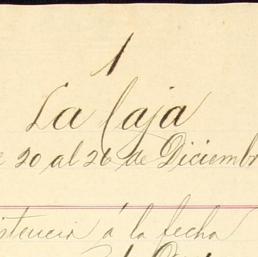 1
La Caja
20 al 26 de Diciembr
istencia á la fecha